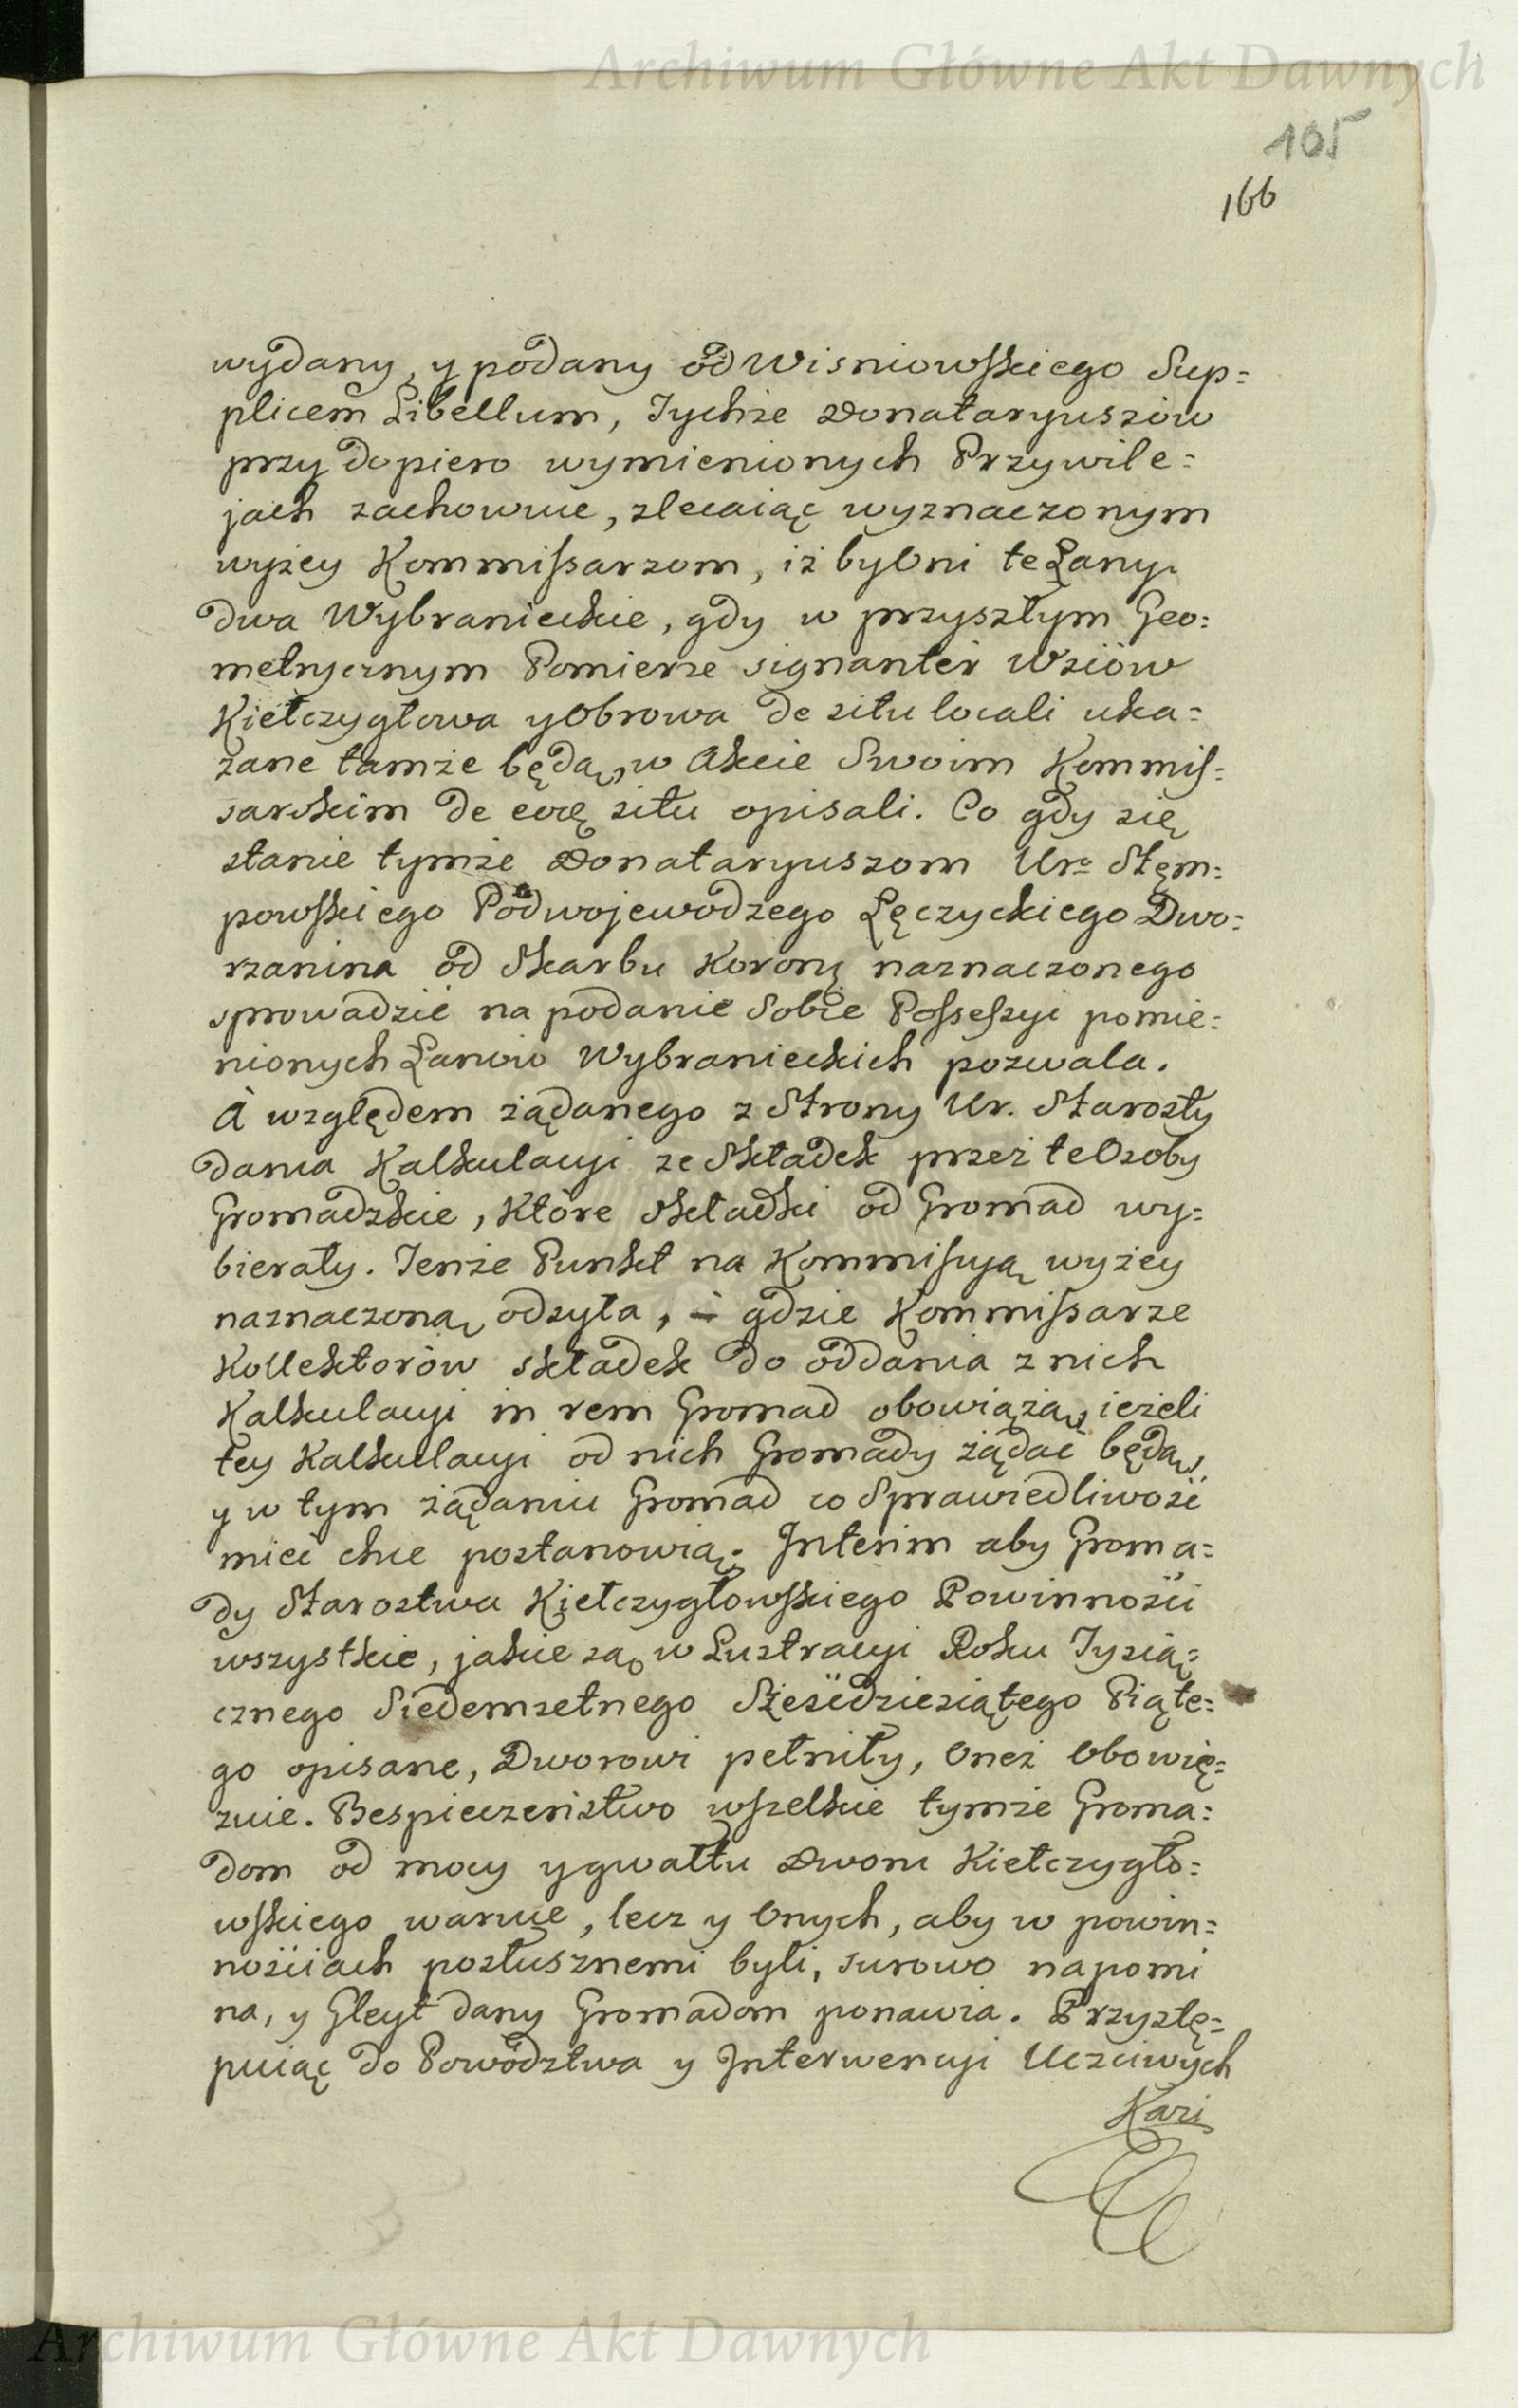 Archiwum Główne Akt Dawnych
105
166
wydany, y podany od Wisniowskiego Sup=
plicem Libellum, Tychże Donataryuszów
przy dopiero wymienionych Przywile=
jach zachowuie, zlecaiąc wyznaczonym
wyżey Kommissarzom, iż by Oni te Łany
dwa Wybranieckie, gdy w przyszłym Geo=
metrycznym Pomierze signanter Wsiów
Kiełczygłowa y Obrowa de situ locali uka=
zane tamże będą, w Akcie Swoim Kommis=
sarskim de eoq situ opisali. Co gdy się
stanie tymże Donataryuszom Uro Stęm=
powskiego Podwojewodzego Łęczyckiego Dwo=
rzanina od Skarbu Korony naznaczonego
sprowadzić na podanie Sobie Possessyi pomie=
nionych Łanów Wybranieckich pozwala.
A względem żądanego z Strony Ur. Starosty
dania Kalkulacyi ze Składek przez te Osoby
Gromadzkie, Które składki od Gromad wy=
bierały. Tenże Punkt na Kommissyją wyżey
naznaczoną odsyła, gdzie Kommissarze
Kollektorów składek do oddania z nich
Kalkulacyi in rem Gromad obowiążą, ieżeli
tey Kalkulacyi od nich Gromady żądać będą,
y w tym żądaniu Gromad co Sprawiedliwość
mieć chce postanowią. Interim aby Groma=
dy Starostwa Kiełczygłowskiego Powinności
wszystkie, jakie są w Lustracyi Roku Tysią=
cznego Siedemsetnego Sześćdziesiątego Piąte=
go opisane, Dworowi pełniły, Oneż Obowię=
zuie. Bespieczeństwo wszelkie tymże Groma=
dom od mocy y gwałtu Dworu Kiełczygło=
wskiego waruie, lecz y Onych, aby w powin=
nościach posłusznemi byli, surowo napomi
na, y Gleyt dany Gromadom ponawia. Przystę=
puiąc do Powództwa y Interwencyi Uczciwych
Kazi
Archiwum Główne Akt Dawnych